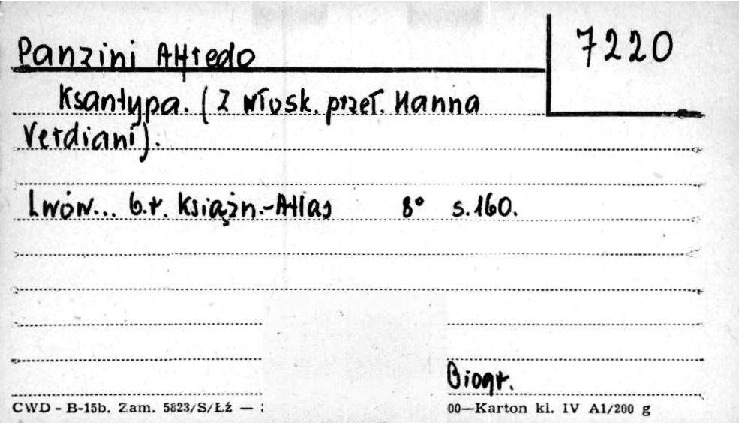 Panzini Alfredo
7220
Ksantypa. (Z włosk. przeł. Hanna
Verdiani).
Lwów... b.r. Książn.-Atlas 8° s.160.
Biogr.
CWD - B-15b. Zam. 5823/S/Łż — 00—Karton kl. IV A1/200 g